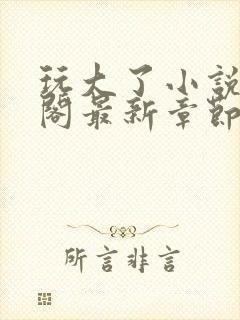 玩大了小説
閣最新章節
所言非言